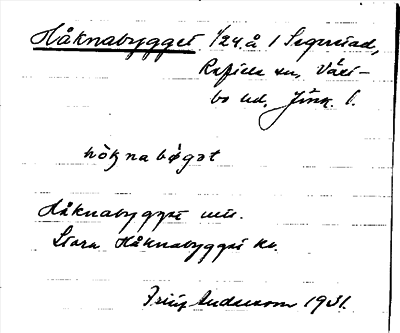 Håknabygget 1/24 å 1 Segerstad,
Reftele sn, Väst-
bo hd, Jönk. l.
hòk̢nabøgət
Håknabygget
Stora Håknabygget
Fritz Andersson 1931.